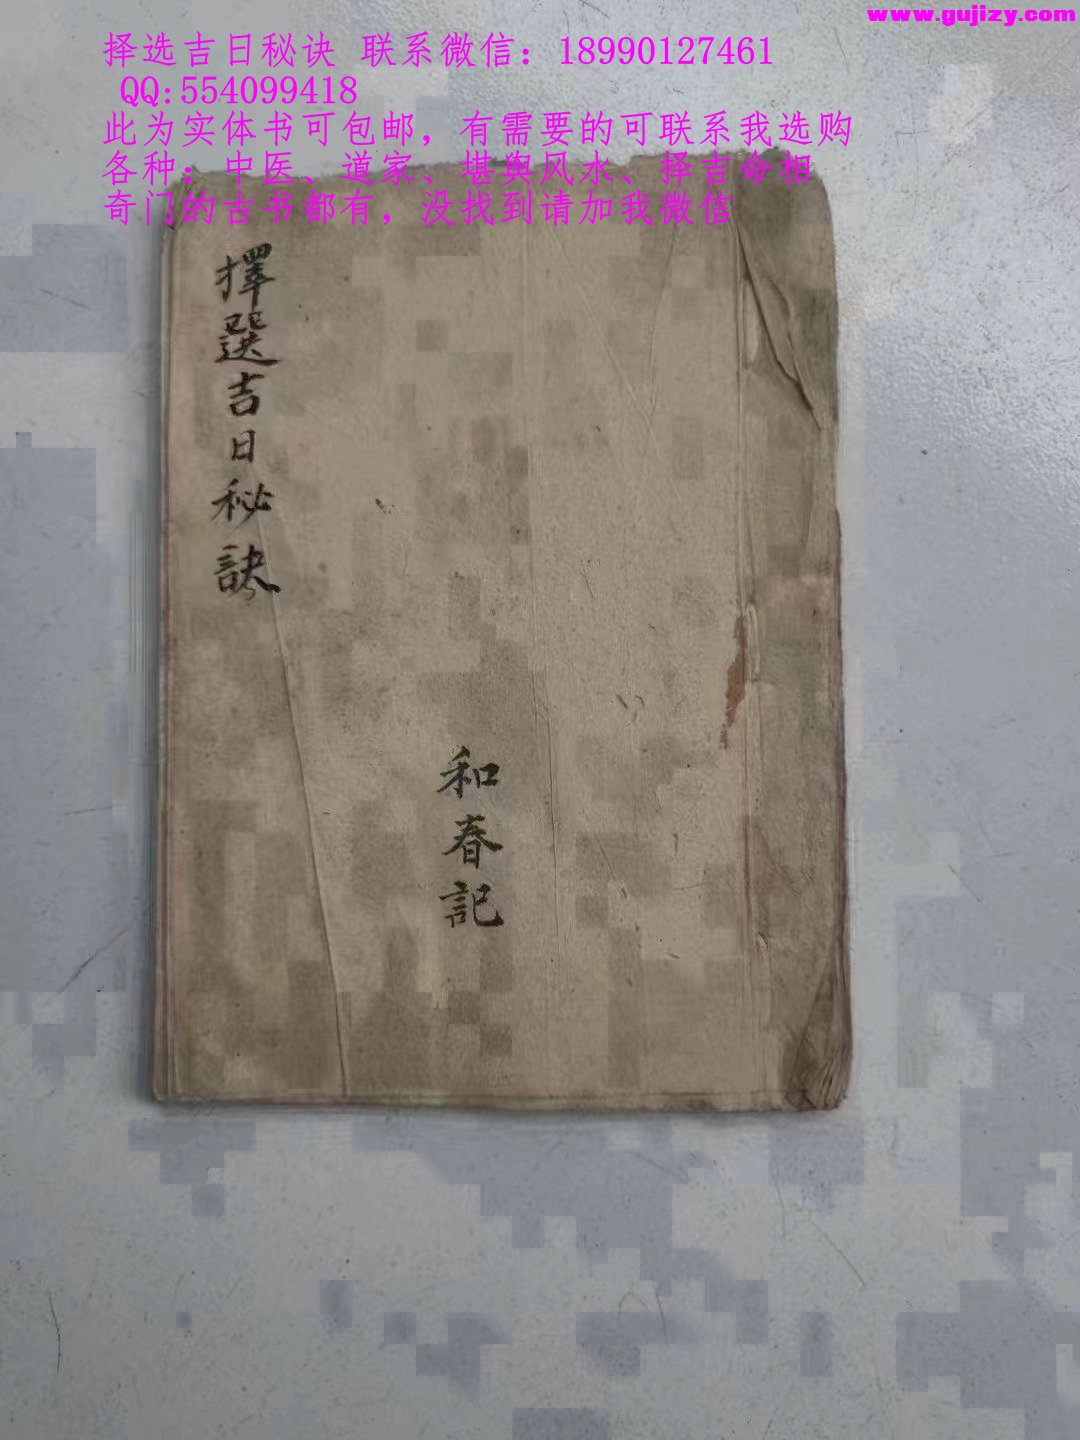 www.gujizy.com
择选吉日秘诀 联系微信：18990127461
QQ:554099418
此为实体书可包邮，有需要的可联系我选购
各种：中医、道家、堪舆风水、择吉命相
奇门的古书都有，没找到请加我微信
擇選吉日秘訣
和春記